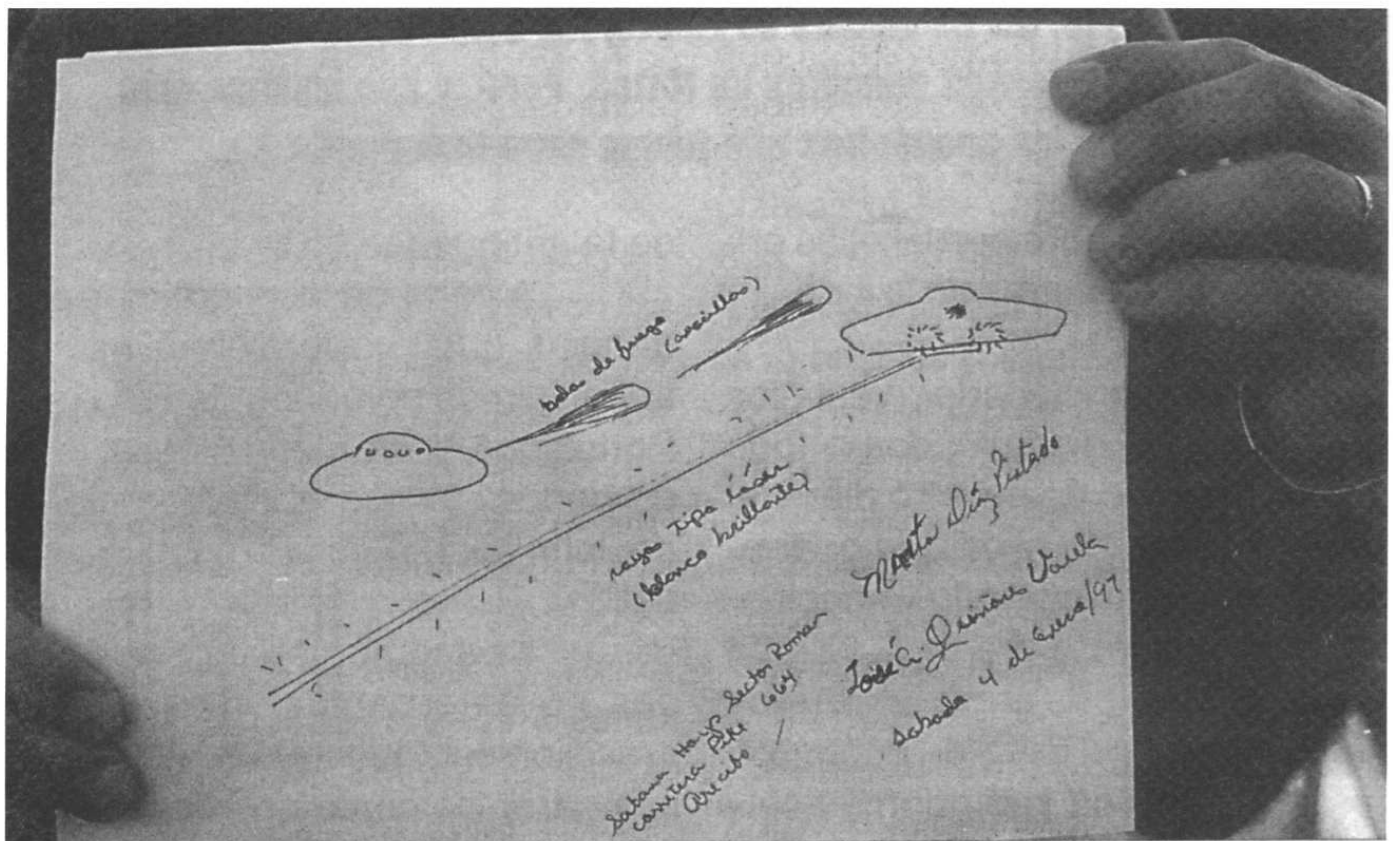 bola de fuego
(amarillas)
rayos tipo láser
(blanco brillante)
Sabana Hoyo Sector Roman
carretera PRR 664
Arecibo
Martha Díaz Pintado
José A. Quiñones Varela
sabado 4 de Enero/97